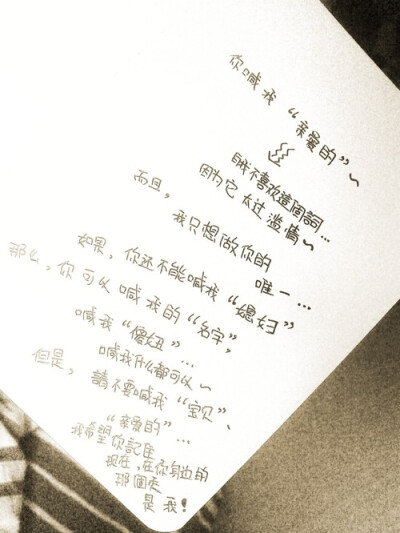 你喊我 “亲爱的”~
我不喜欢這個詞...
因为它 太过 滥情~
而且,
我只想做你的
唯一...
如果, 你还不能喊我 “媳妇”
那么, 你可以 喊我的 “名字”,
喊我 “傻妞” ...
喊我什么都可以~
但是, 請不要喊我 “宝贝”、
“亲爱的” ...
我希望你記住
现在, 在你身边的
那個人
是我!